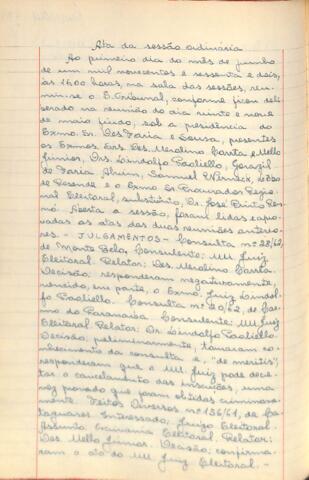 Ata da sessão ordinária
Ao primeiro dia do mês de junho
de um mil novecentos e sessenta e dois,
às 16:00 horas, na sala das sessões, reu-
niu-se o E. Tribunal, conforme ficou deli-
berado na reunião do dia vinte e nove
de maio findo, sob a presidência do
Exmo. Sr. Des. Faria e Sousa, presentes
os Exmos. Srs. Des. Merolino Corrêa e Mello
Júnior, Drs. Lindolfo Paoliello,
de Faria Alvim, Samuel Werneck,
de Resende, e o Exmo. Sr. Procurador Regio-
nal Eleitoral, substituto, Dr. José
Aberta a sessão, foram lidas e apro-
vadas as atas das duas reuniões anterio-
res. - JULGAMENTOS - Consulta nº 22/62,
de Monte Belo. Consulente: MM. Juiz
Eleitoral. Relator: Des. Merolino Corrêa.
Decisão: responderam negativamente,
vencido, em parte, o Exmo. Juiz Lindol-
fo Paoliello. Consulta nº 20/62, de Car-
mo do Paranaíba. Consulente: MM. Juiz
Eleitoral. Relator: Dr. Lindolfo Paoliello.
Decisão, preliminarmente, tomaram co-
nhecimento da consulta e, "de meritis",
responderam que o MM. Juiz pode decre-
tar o cancelamento das inscrições, uma
vez provado que foram obtidas criminosa-
mente. Feitos Diversos nº 136/61, de Ca-
taguases. Interessado: Juízo Eleitoral.
Assunto: Eleitoral. Relator:
Des. Mello Júnior. Decisão: confirma-
ram o ato do MM. Juiz Eleitoral. -